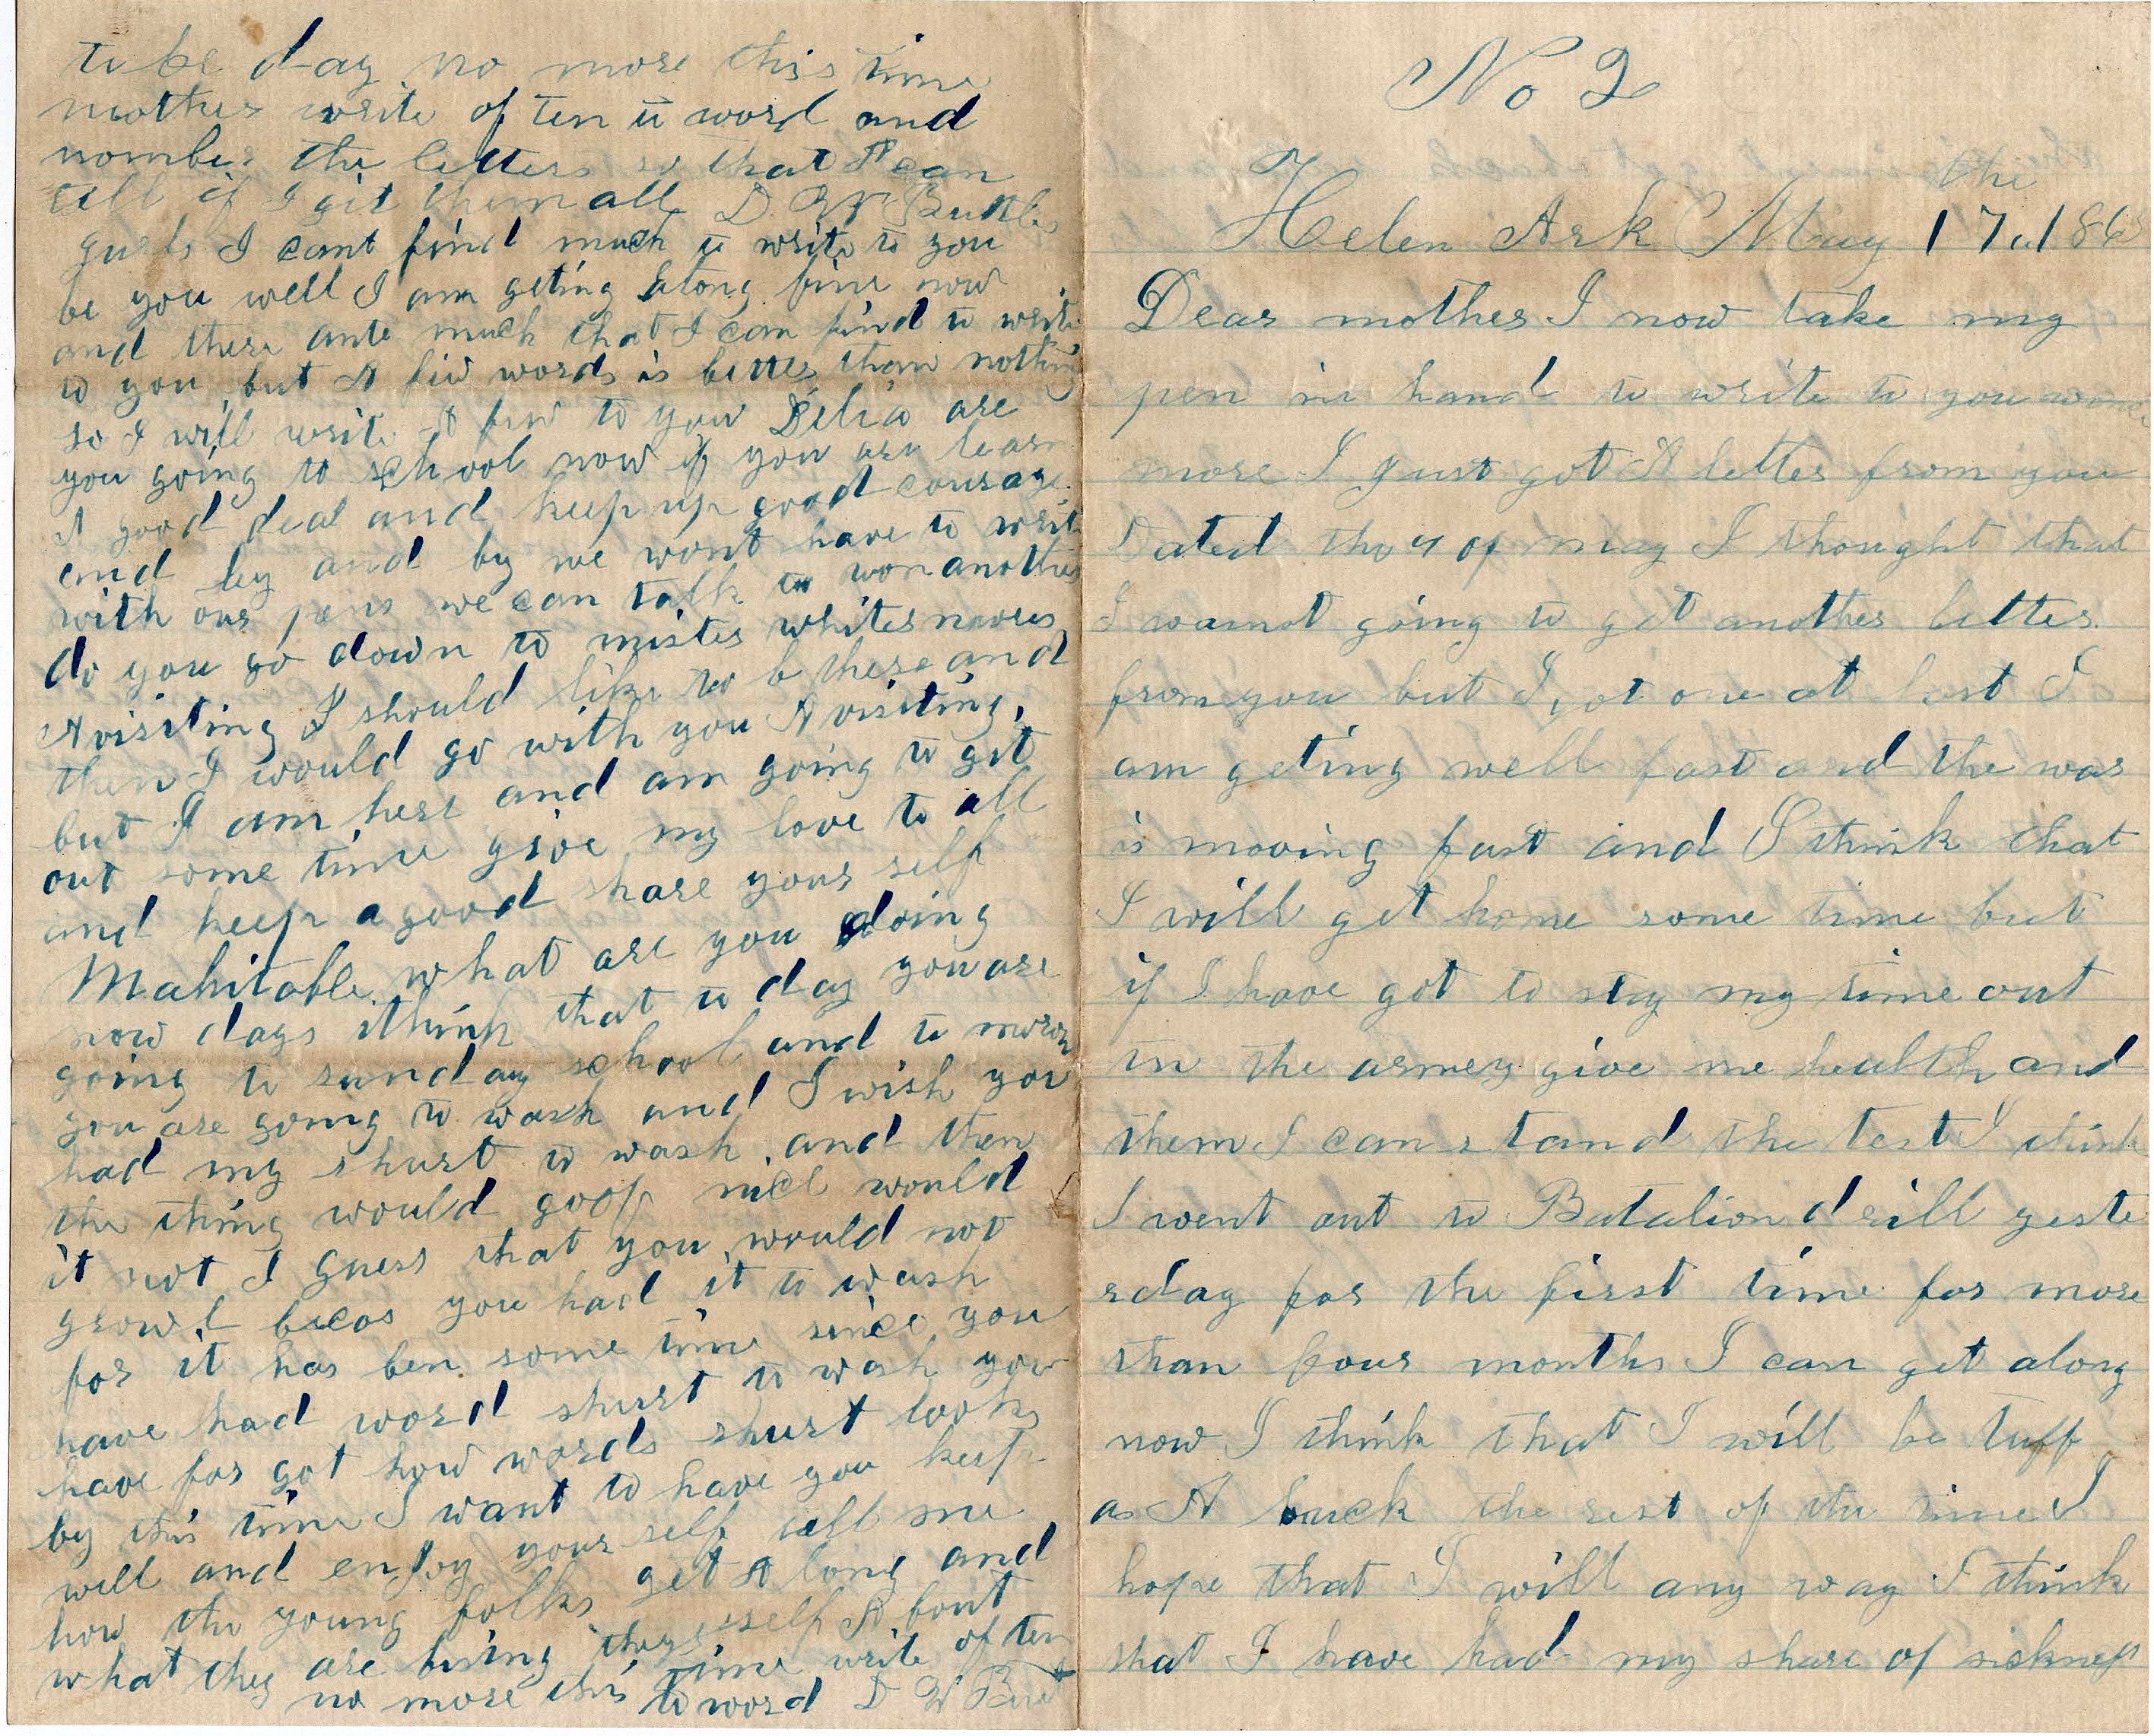 No 2
the
Helen Ark May 17, 186
Dear mother I now take my
pen in hand to write to you wonce
more I just got A letter from you
Dated the 4 of may I thought that
I warnot going to get another letter
from you but I got one at last I
am geting well fast and the war
is moving fast and I think that
I will get home some time but
if I have got to stay my time out
in the armey give me health and
them I can stand the test I think
I went out to Batalion drill yeste
rday for the first time for more
than four months I can get along
now I think that I will be tuff
as A buck the rest of the time I
hope that I will any way I think
that I have had my share of sickness
to be day no more this time
mother write of ten to word and
nomber the letters so that A can
tell if I git them all D. W.
gurls I cant find much to write to you
be you well I am geting along fine now
and there ante much that I can find to write
to you but A few words is better than nothing
so I will write A few to you Delia are
you going to school now if you are learn
A good deal and keep up good courage
and by and by we wont have to write
with our pens we can talk to won another
do you go down to mister whites nowes
Avisiting I should like to b there and
then I would go with you A visiting,
but I am here and am going to git
out some time give my love to all
and keep a good share your self
Mahitable what are you doing
now days ithink that to day you are
going to sunday school and to morow
you are going to wash and I wish you
had my shurt to wash and then
the thing would goof nice would
it not I guess that you would not
growl becos you had it to wash
for it has ben some time since you
have had word shurt to wash you
have for got how words shurt looks
by this time I want to have you keep
well and enjoy your self tell me
how the young folks get A long and
what they are buing there self A bout
no more this time write of ten
to word D W